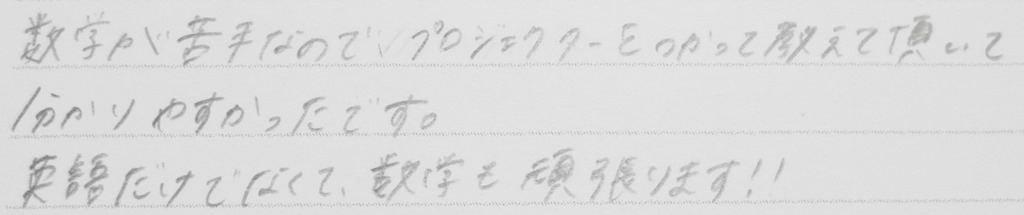 数学が苦手なので、プロジェクターをつかって教えて頂いて
分かりやすかったです。
英語だけでなくて、数学も頑張ります!!